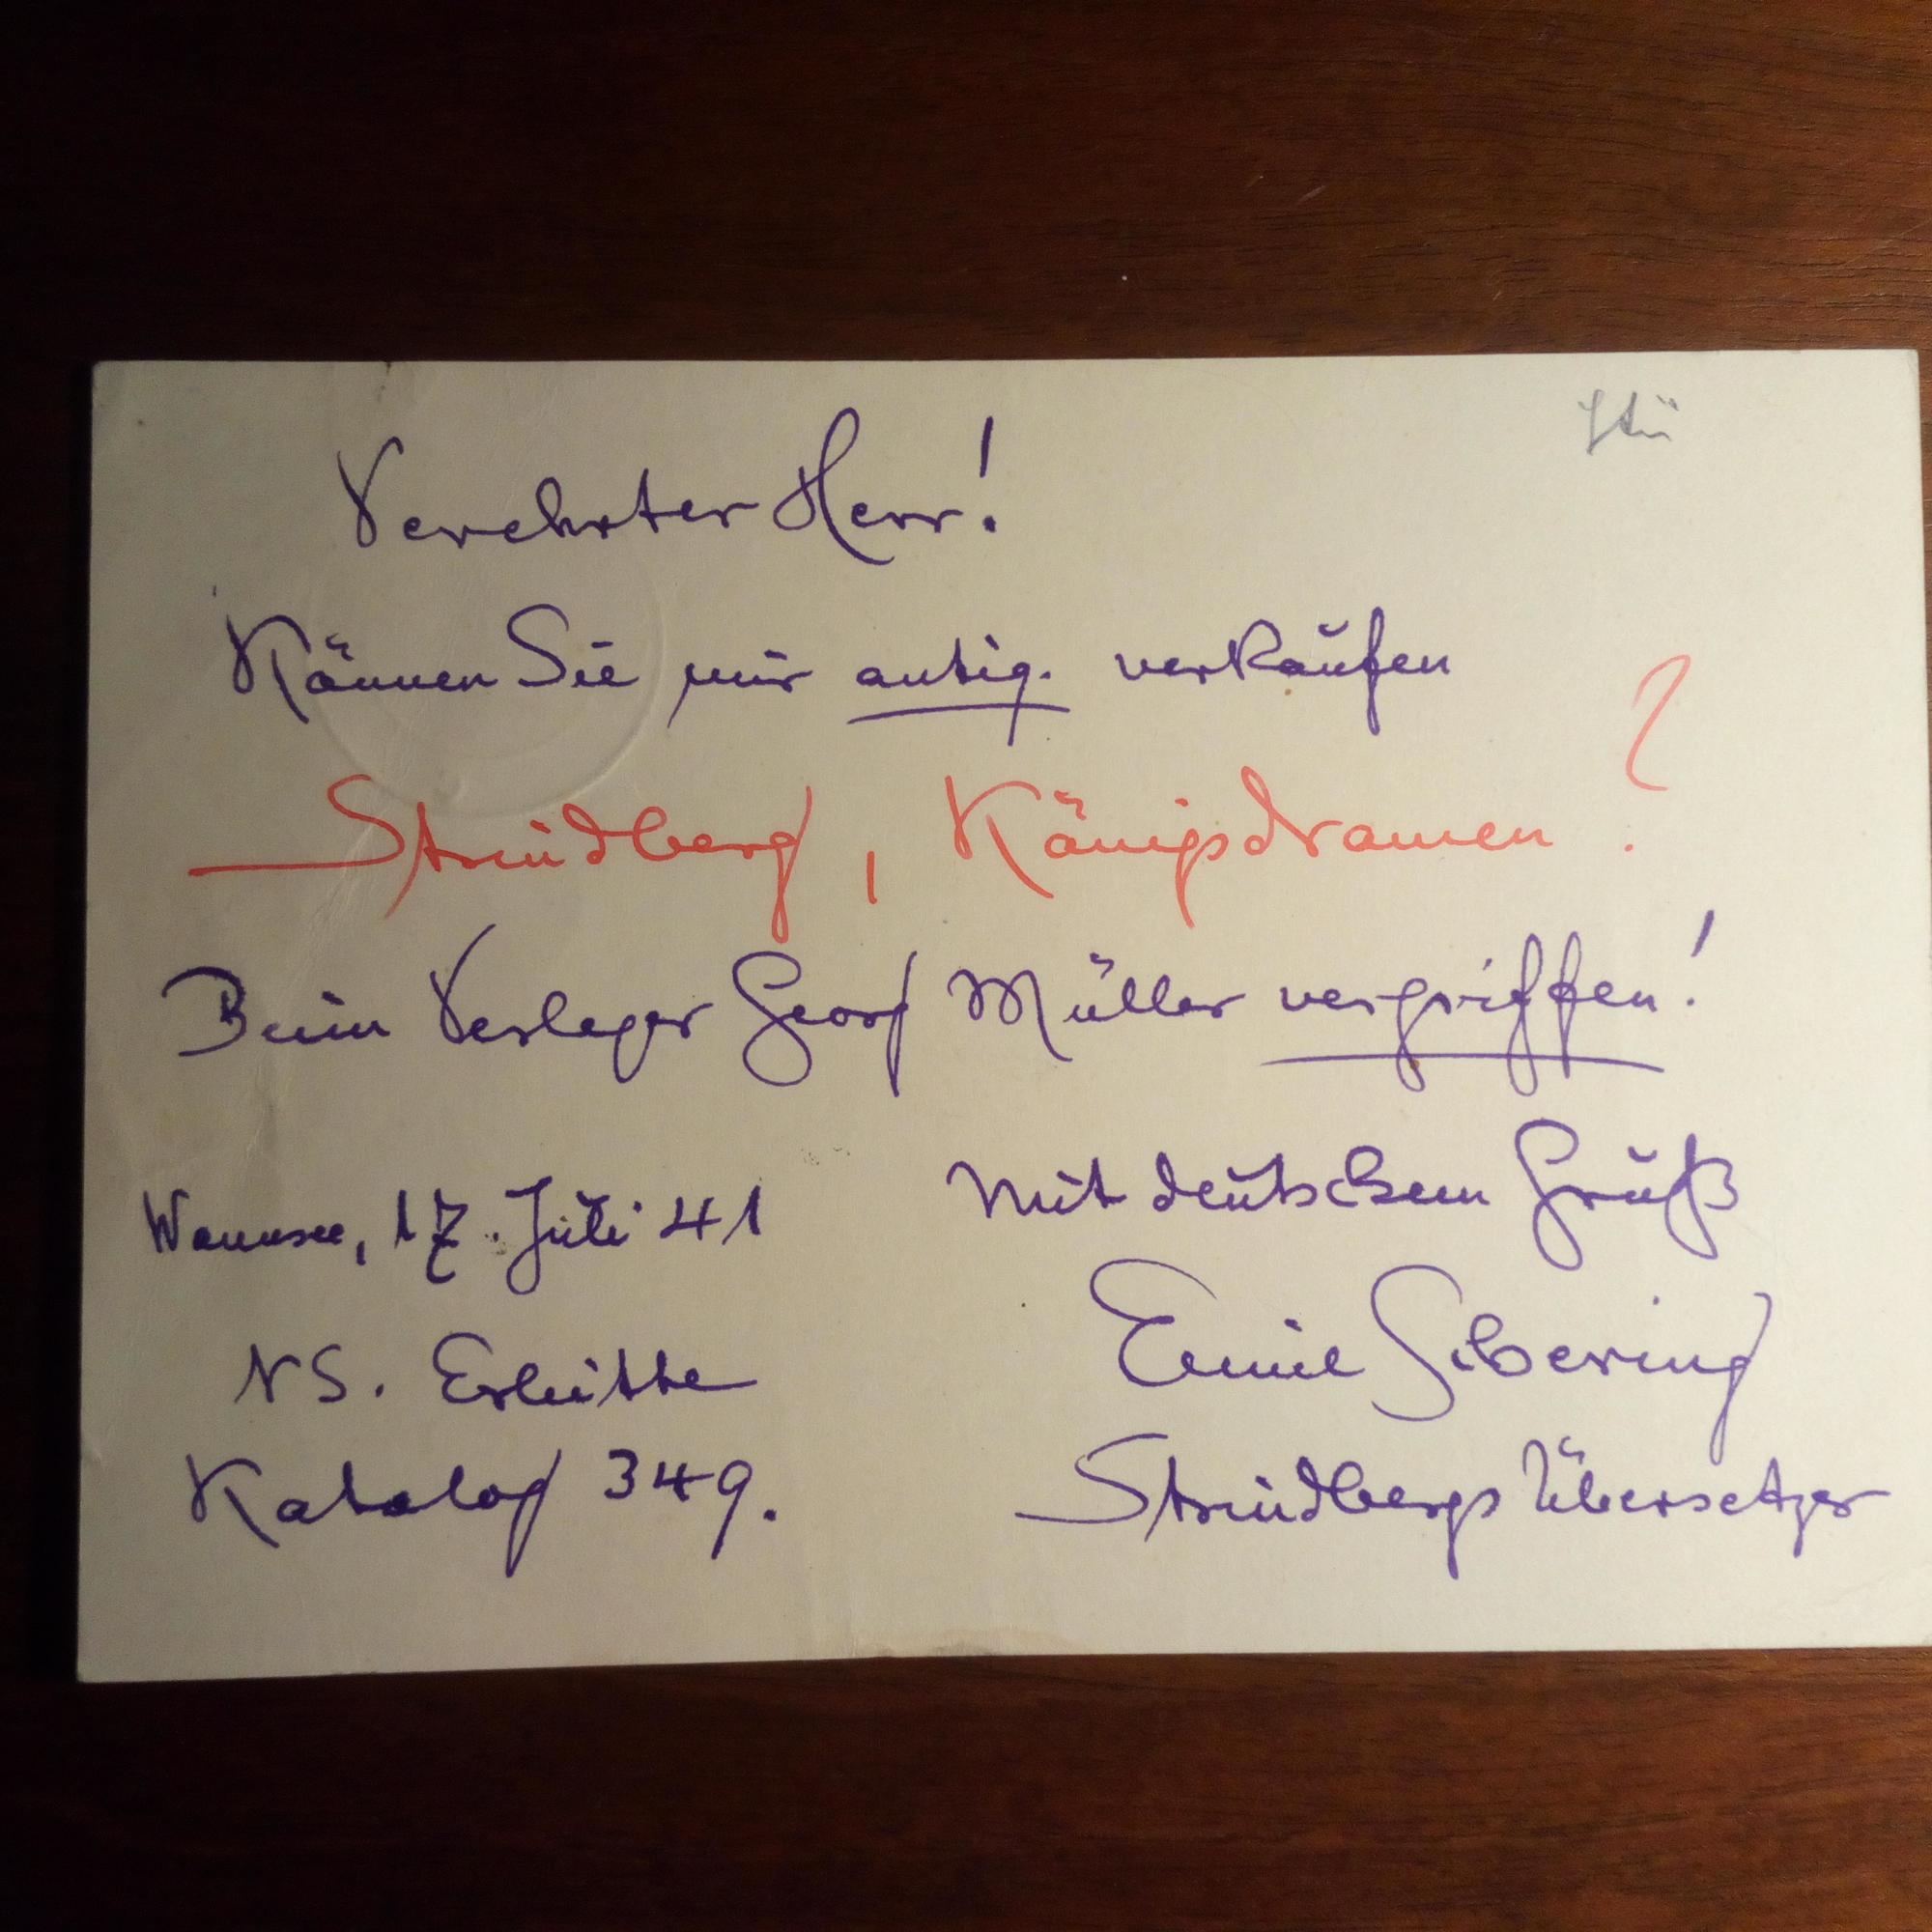 Verehrter Herr!
Können Sie mir antiq. verkaufen
Strindberg, Königsdramen?
Beim Verleger Georg Müller vergriffen!
Mit deutschem Gruß
Wannsee, 17. Juli 41
Emil Schering
NS. Erbitte
Katalog 349.
Strindbergs Übersetzer